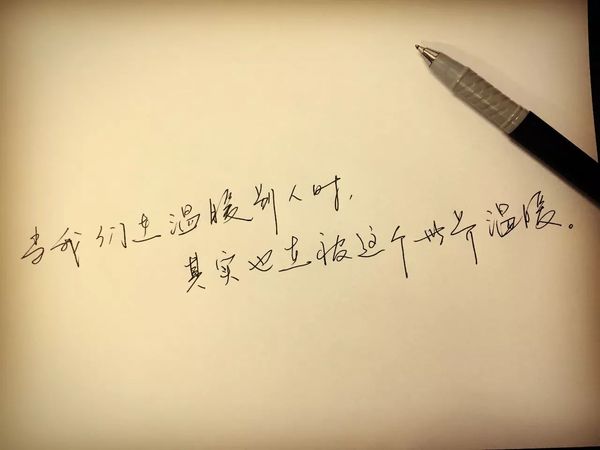 当我们在温暖别人时，
其实也在被这个世界温暖。